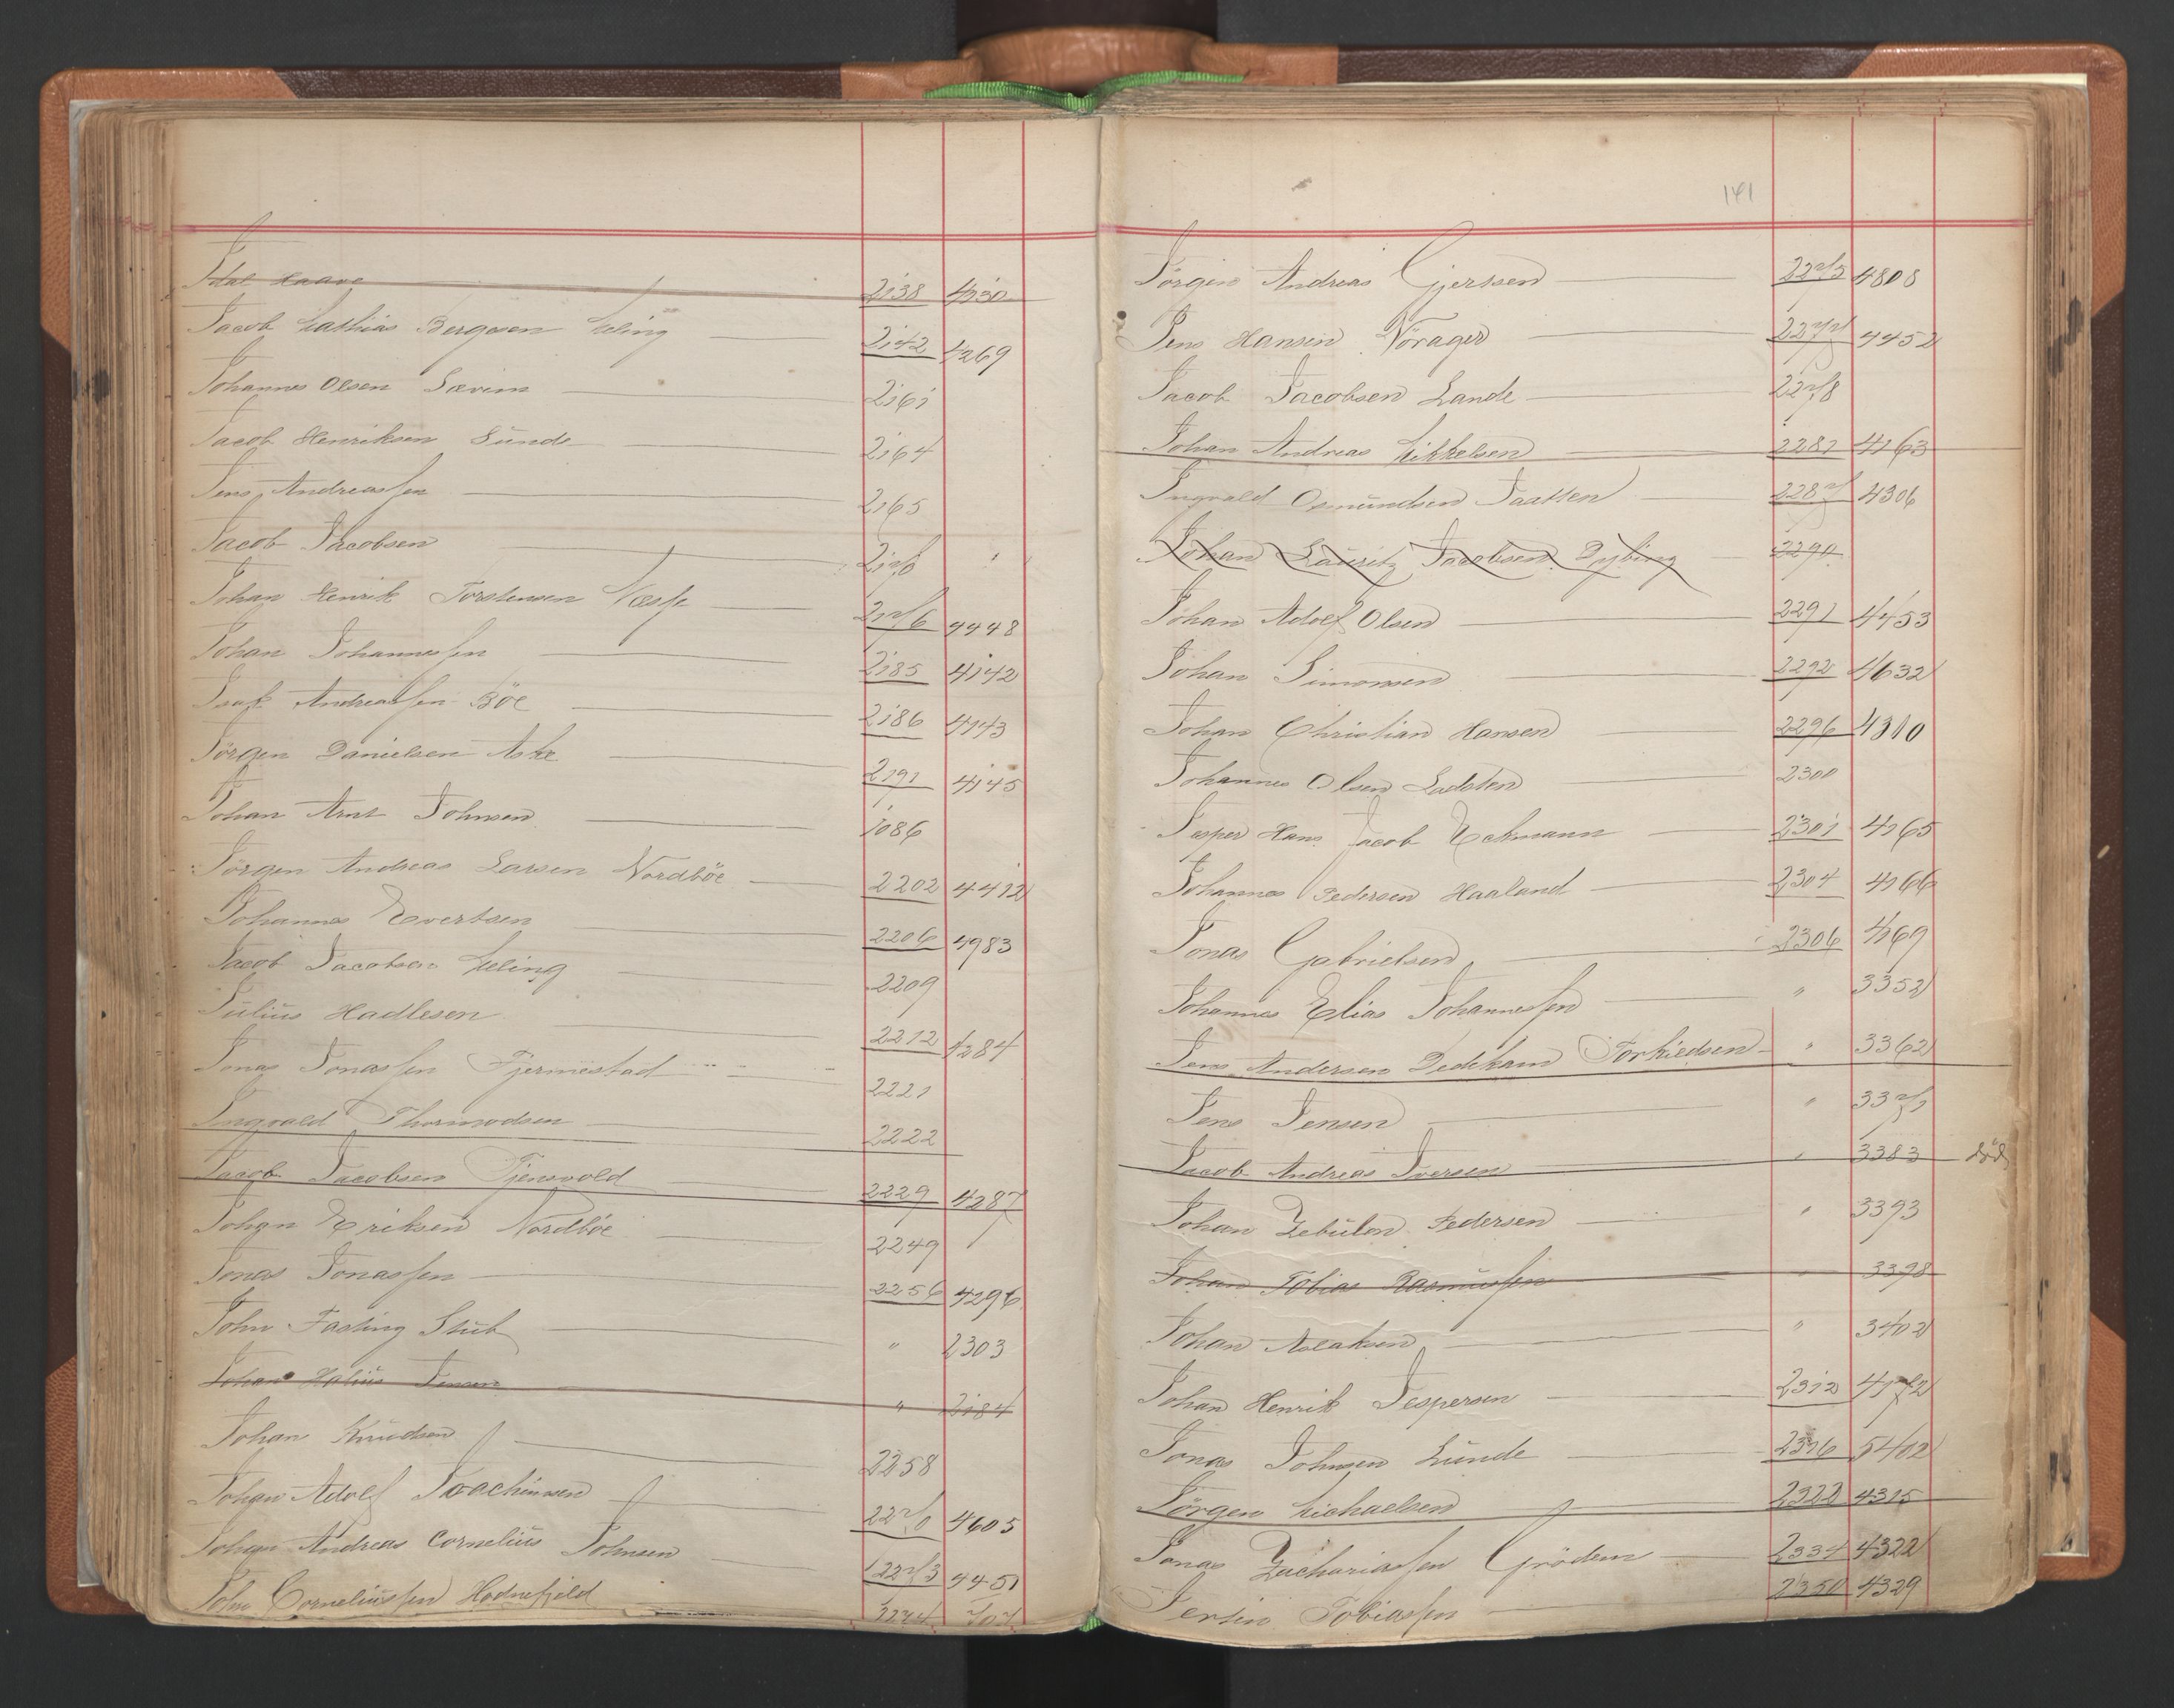 Idal Haave 2138 4230
Jacob Mathias Bergesen Meling 2142 4269
Johannes Olsen Sævim 2161
Jacob Henriksen Lunde 2164
Jens Andreassen 2165
Jacob Jacobsen 2170
Johan Henrik Torstensen Næsse 2176 4448
Johan Johannessen 2185 4142
Isak Andreassen Böe 2186 4143
Jörgen Danielsen Aske 2191 4145
Johan Arnt Johnsen 1086
Jörgen Andreas Larsen Nordböe 2202 4412
Johannes Evertsen 2206 4983
Jacob Jacobsen Meling 2209
Julius Hadlesen 2212 4284
Jonas Jonassen Tjermestad 2221
Ingvald Thormodsen 2222
Jacob Jacobsen Tjensvold 2229 4287
Johan Eriksen Nordböe 2249
Jonas Jonassen 2256 4296
John Fasting Stub " 2303
Johan Jensen " 2184
Johan Knudsen 2258
Johan Adolf Joachimsen 2270 4605
Johan Andreas Cornelius Johnsen 2273 4451
John Corneliussen Hodnefjeld 2274
141
Jörgen Andreas Gjertsen 2275 4808
Jens Hansen Nörager 2277 4452
Jacob Jacobsen Lande 2278
Johan Andreas Mikkelsen 2281 4163
Ingvald Osmundsen Taatten 2287 4306
Johan Lauritz Jacobsen Dybing 2290
Johan Adolf Olsen 2291 4453
Johan Simonsen 2292 4632
Johan Christian Hansen 2296 4310
Johannes Olsen Ladsten 2300
Jesper Hans Jacob Eckmann 2301 4165
Johannes Pedersen Haaland 2304 4166
Jonas Gabrielsen 2306 4169
Johannes Elias Johannessen " 3352
Jens Andersen Dedekam Torkildsen " 3362
Jens Jensen " 3371
Jacob Andreas Iversen " 3383 död
Johan Zebulon Pedersen " 3393
Johan Tobias Rasmussen " 3398
Johan Aslaksen " 3402
Johan Henrik Jespersen 2312 4172
Jonas Johnsen Lunde 2316 5402
Jörgen Michaelsen 2322 4315
Jonas Zachariassen Grödem 2334 4322
Jersin Tobiassen 2350 4329